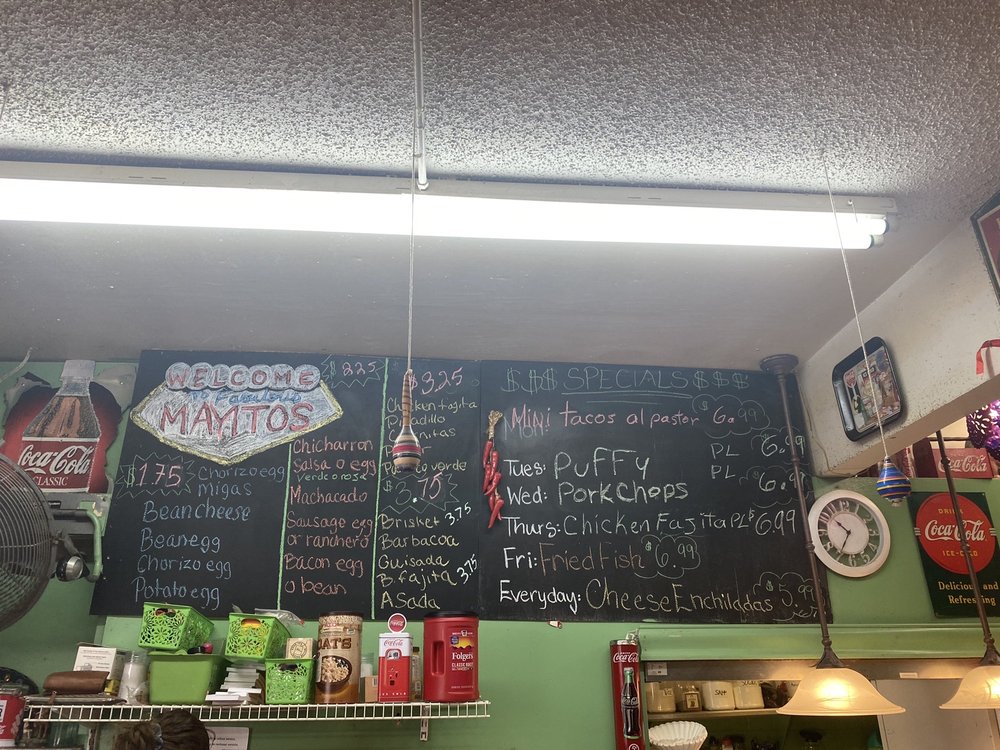 WELCOME
to Fabulous
MAYITOS
$1.75
Chorizo egg
migas
Bean cheese
Bean egg
Chorizo egg
Potato egg
$2.25
Chicharron
Salsa o egg
verde o rosa
Machacado
Sausage egg
or ranchero
Bacon egg
o bean
$3.25
Chicken fajita
verde
$3.75
Brisket 3.75
Barbacoa
Guisada
B. fajita 3.75
Asada
$$$ SPECIALS $$$
MON:
Mini tacos al pastor 6.99
Tues: PUFFY PL 6.99
Wed: Pork Chops PL 6.99
Thurs: Chicken Fajita PL $6.99
Fri: Fried Fish $6.99
Everyday: Cheese Enchiladas $5.99
Coca-Cola
CLASSIC
Folgers
CLASSIC ROAST
Coca-Cola
Coca-Cola
DRINK
Coca-Cola
ICE-COLD
Delicious and
Refreshing
SALT